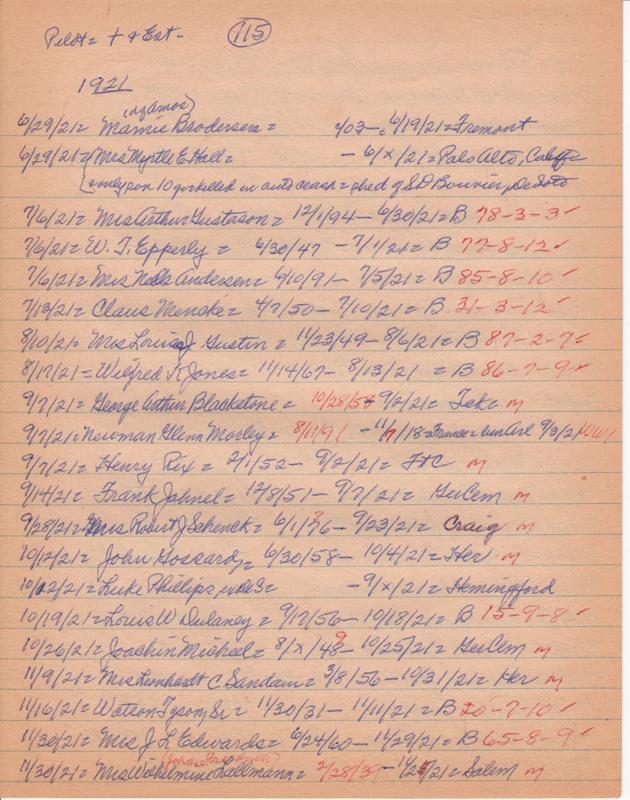 Pilot = + & Ent - 115
1921
(dg Amos)
6/29/21 = Mamie Brodersen = 1/03 - 6/19/21 = Fremont
6/29/21 = Mrs Myrtle E Hall = - 6/x/21 = Palo Alto, Calif
& only son 10 yr killed in auto crash = gded of S D Bouvier, DeSoto
7/6/21 = Mrs Arthur Gustafson = 12/1/94 - 6/30/21 = B 78-3-3 ✓
7/6/21 = W. T. Epperly = 6/30/47 - 7/1/21 = B 77-8-12 ✓
7/6/21 = Mrs Nels Andersen = 6/10/91 - 7/5/21 = B 85-8-10 ✓
7/13/21 = Claus Mencke = 4/7/50 - 7/10/21 = B 31-3-12 ✓
8/10/21 = Mrs Louisa J Gustin = 11/23/49 - 8/6/21 = B 87-2-7 ✓
8/17/21 = Wilfred K Jones = 11/14/67 - 8/13/21 = B 86-7-9 ✓
9/7/21 = George Arthur Blackstone = 10/28/54 9/2/21 = Tek M
9/7/21 = Newman Glenn Morley = 8/11/91 - 11/7/18 = France = bur Arl 9/3/21 WW1
9/7/21 = Henry Rix = 2/1/52 - 9/2/21 = FtC M
9/14/21 = Frank Jahnel = 12/8/51 - 9/7/21 = GerCem M
9/28/21 = Mrs Robert J Schenck = 6/1/36 - 9/23/21 = Craig M
10/12/21 = John Gossard = 6/30/58 - 10/4/21 = Her M
10/02/21 = Luke Phillips - 9/x/21 = Hemingford
10/19/21 = Louis W Dulaney = 9/17/56 - 10/18/21 = B 15-9-8 ✓
10/26/21 = Joachin Michael = 8/x/48 9 - 10/25/21 = GerCem M
11/9/21 = Mrs Leonhardt C Sandau = 3/8/56 - 10/31/21 = Her M
11/16/21 = Watson Tyson, Sr = 11/30/31 - 11/11/21 = B 20-7-10 ✓
11/30/21 = Mrs J L Edwards = 6/24/60 - 11/29/21 = B 65-8-9 ✓
11/30/21 = Mrs Wilhelmine Lallmann = 2/28/39 - 11/25/21 = Salem M